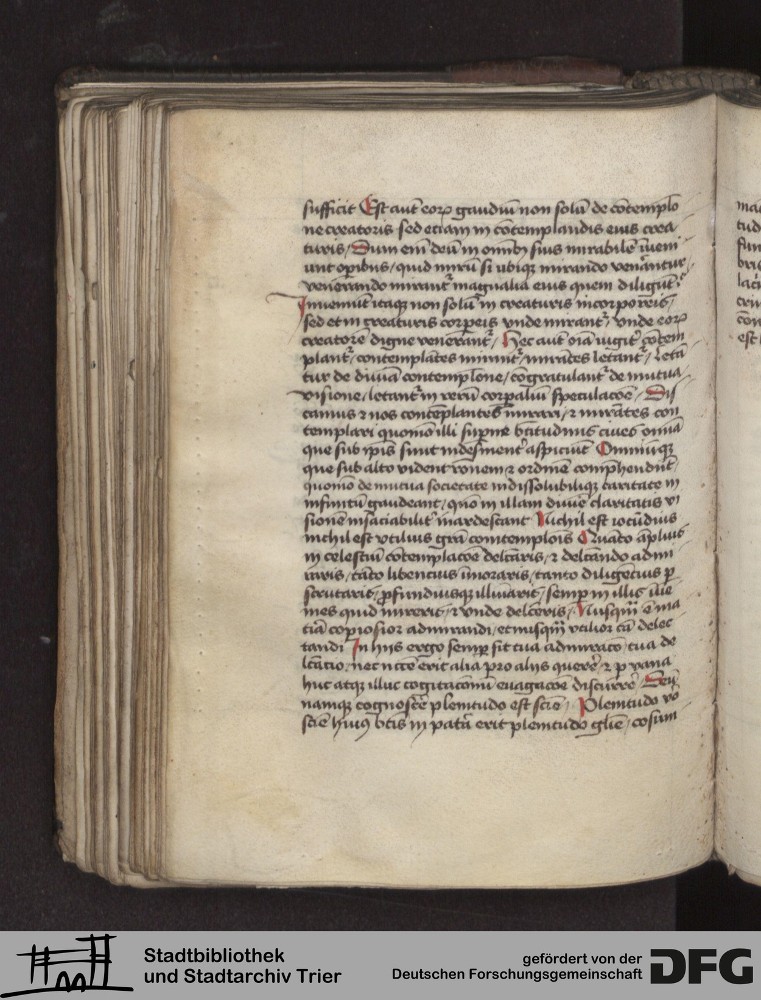 sufficit Est aut̄ eoꝝ gaudiū non solū de cōtemplo
ne creatoris sed etiam in cōtemplandis eius crea
turis / Dum em̄ deū in omībꝫ suis mirabilē īueni
unt operibus / quid mirū si ubiqꝫ mirando venerantur /
venerando mirant᷑ magnalia eius quem diligūt /
Inueniūt itaqꝫ non solū in creaturis incorporeis /
sed et in creaturis corpeis vnde mirant᷑ / vnde eoꝝ
creatorē digne venerant᷑ / Hec aut̄ oīa iugit̄ cōtem
plant᷑ / contemplātes mirant᷑ / mirātes letant᷑ / leta
tur de diuīa contemplōne / cōgratulant᷑ de mutua
visione / letant᷑ in rerū corpaliū speculacōe / Dis
camus ⁊ nos contēplantes mirari / ⁊ mirātes con
templari quomō illi supne btītudinis ciues omīa
que sub ipīs sunt indesinent̄ aspiciūt Omniūqꝫ
que sub alto vident rōnem ⁊ ordinē comphendūt /
quomō de mutua societate indissolubiliqꝫ caritate in
infinitū gaudeant / quō in illam diuīe claritatis vi
sionē insaciabilit̄ inardescant Nichil est iocūdius
nichil est vtilius grā contemplōis Quāto āplius
in celestiū cōtemplacōe delc̄aris / ⁊ delc̄ando admi
raris / tāto libencius īmoraris / tanto diligēcius p
scrutaris / ꝓfundiusqꝫ illūīaris / semp in illis īue
nies quid mireris / ⁊ vnde delc̄eris / Nusqͣm ē ma
tīa copiosior admirandi / et nusqͣm vtilior cā delec
tandi In hijs ergo semp sit tua admiracō / tua de
lc̄atio / nec nc̄cē erit alia pro alijs querē / ⁊ p vana
huc atqꝫ illuc cogitacōnū euagacōē discurrē Deū
namqꝫ cognoscē plenitudo est sciē / Plenitudo vo
sciē huiꝰ btīs in patīa erit plenitudo glīe / cosum
Stadtbibliothek
und Stadtarchiv Trier
gefördert von der
Deutschen Forschungsgemeinschaft
DFG